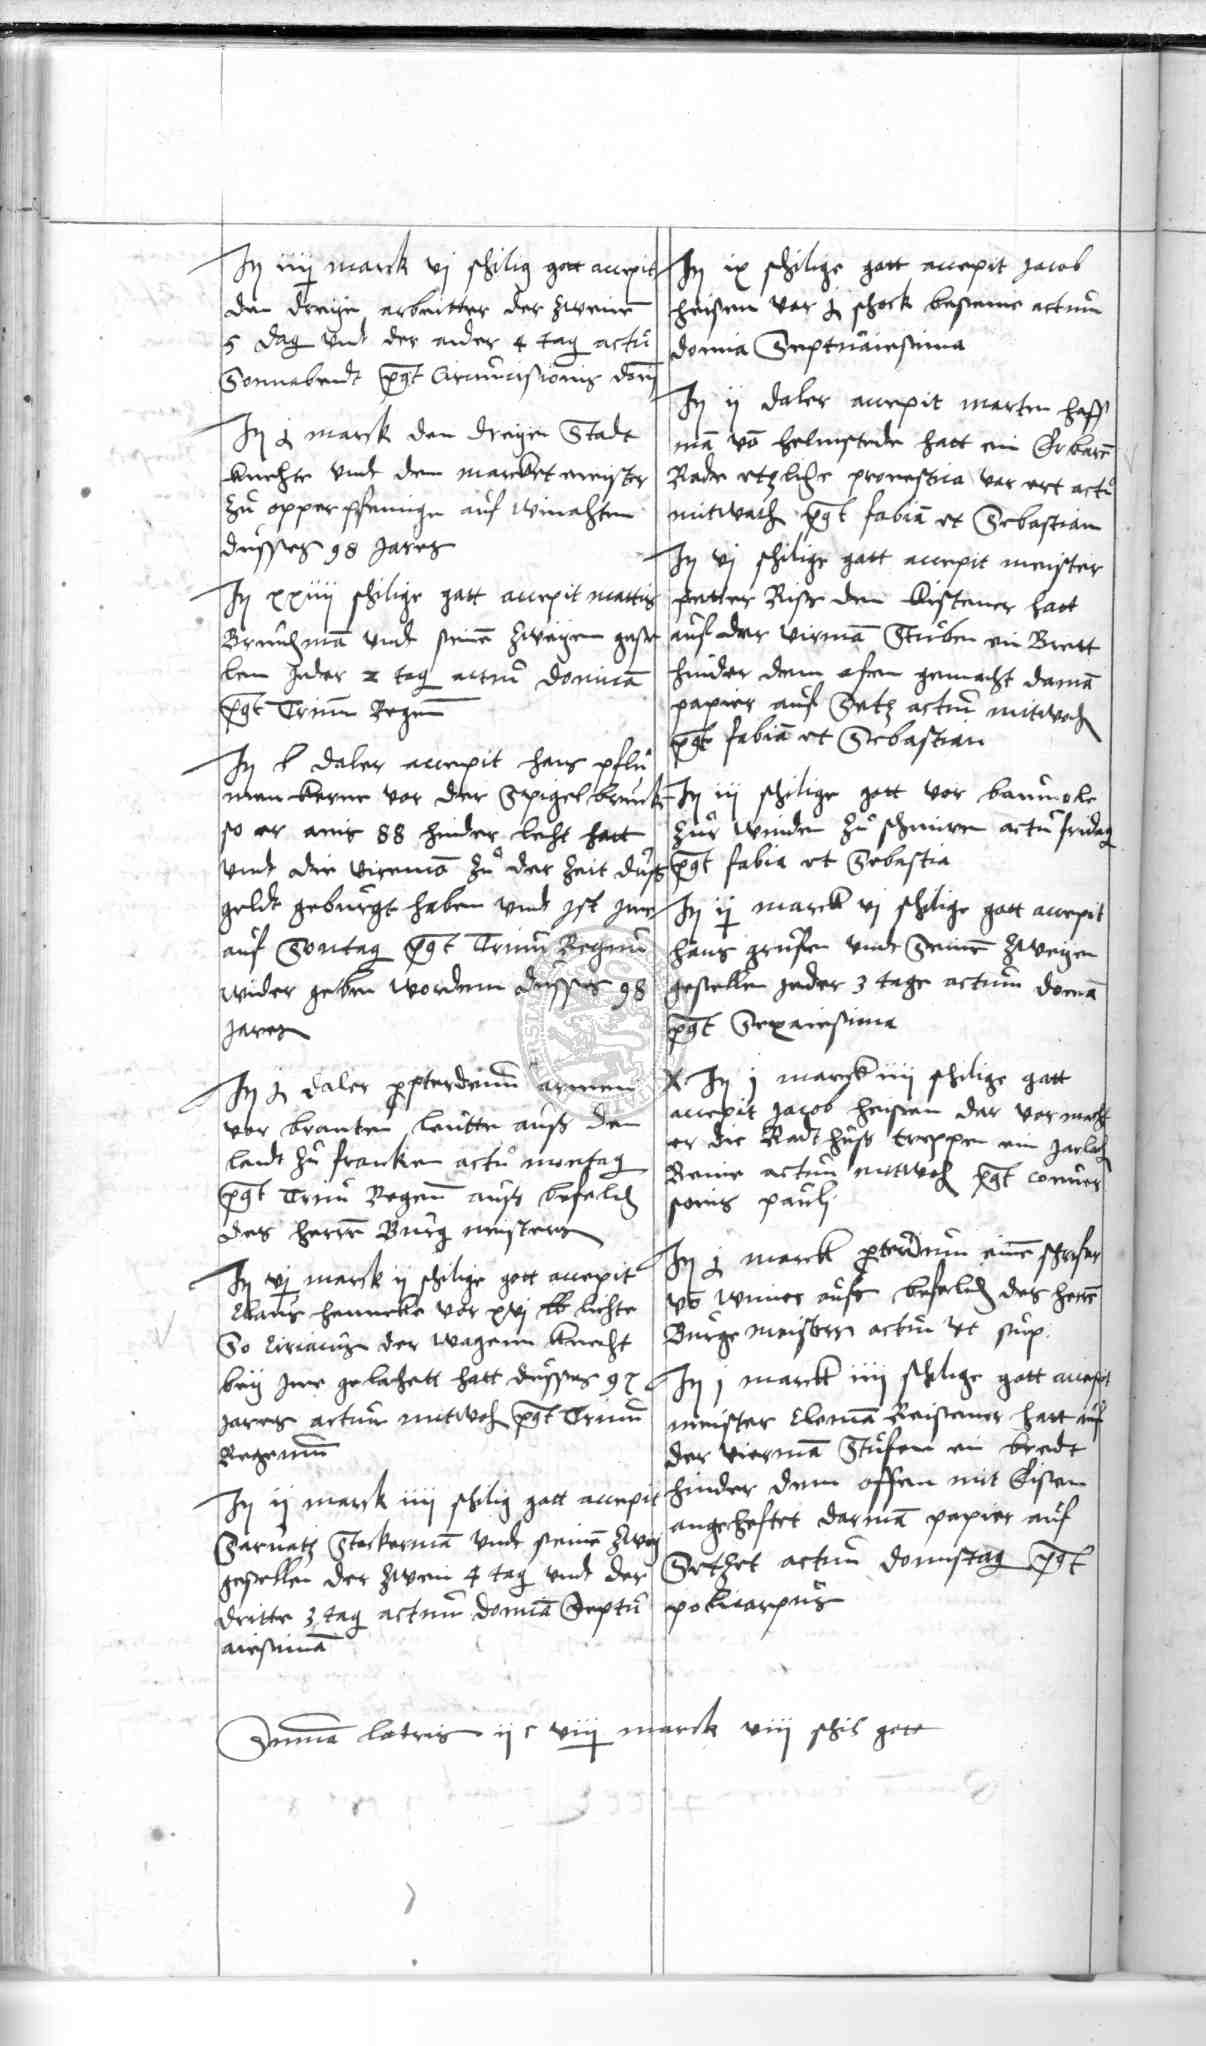 In iiij marck vj schilig gott accepit
den dreyen arbeitter der zweinē
5 dag vnd der ander 4 tag actū
Sonnabendt post Circumcisionis dom
In j marck den dreyen Stadt
knechte vnd dem marcktmeister
zu opper pfennige auf winachten
dusses 98 Jares
In xxiiii schilige gott accepit mattis
Bruchmā vnd seinē zweyen gese
len Jeder 2 tag actū dominicā
post Trium Regum
In l daler accepit hans pflu
men kerne vor der Spigel brück
so er anis 88 hinder lecht hatt
vnd die viremō zu der zeit duß
geldt geburgt haben vnd ist ime
auf Sontag post Trium Regum
wider geben wordenn dusses 98
Jares
In j daler propter deum armen
vor branten leutte auß dem
landt zu francken actū montag
post Trium Regum auß befelich
des herrē Burg meisters
In vj marck ij schilige gott accepit
Clans hennecke vor xvj lb lichte
So Ciriacus der wagenn knecht
bey ime gelachett hatt dusses 97
Jares actum mitwoch post Trium
Regum
In ij marck iiii schilig gott accepit
Stockermā vnd seinē zwey
gesellen der zwein 4 tag vnd der
dritte 3 tag actum dominicā Septu
aiesimā
In ix schilige gott accepit Jacob
heisen vor j schock besseme actum
domīca Septuaiesima
In ij daler accepit marten hoff
mā vō helmstede hatt ein Erbarē
Rade etzliche pronostica vor ert actū
mitwoch post fabiā et Sebastian
In vj schilige gott accepit meister
petter Riße den kistener hatt
auf der virmā Stuben ein Brett
hinder dem ofen gemacht damā
papier auf Setz actum mitwoch
post fabiā et Sebastian
In iii schilige gott vor baumole
zur winden zu schmiren actū fridag
post fabia et Sebastia
In ij marck vj schilige gott accepit
hans grufen vnd Seinē zweyen
gesellen jeder 3 tage actum domcā
post Sexaiesima
X In j marck iiii schilige gott
accepit Jacob heisen dar vor macht
er die Radt huß treppen ein Jarlich
Reine actum mitwoch post conver
sionis pauli
In j marck propter deum einē schefer
vō auß befelich des herrē
Burge meisters actū vt sup.
In j marck iiii schilige gott accepit
meister Clemā kistener hatt auf
der viermā Stufen ein bredt
hinder dem offen mit Eisen
angeheftet darmā papier auf
Setzet actum donnstag post
policarpus
Summa latris ij c viij marck viii schil gott